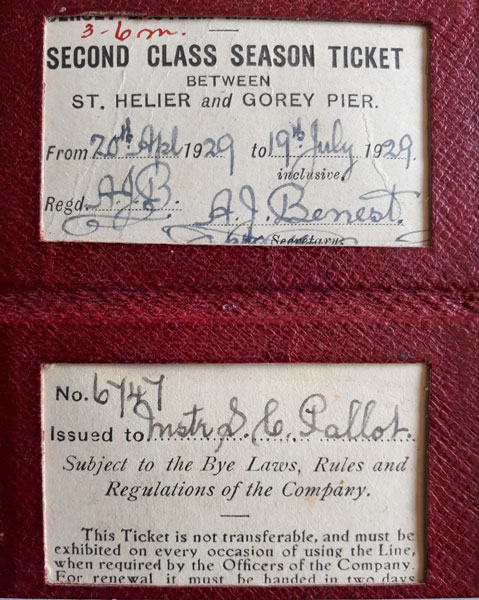 JERSEY EASTERN
3-6m.
SECOND CLASS SEASON TICKET
BETWEEN
ST. HELIER and GOREY PIER.
From 20th Apl 1929 to 19th July 1929.
inclusive.
Regd. A.J.B. A.J. Benest.
Secretary.
No. 6747
Issued to Mstr S. C. Pallot.
Subject to the Bye Laws, Rules and
Regulations of the Company.
This Ticket is not transferable, and must be
exhibited on every occasion of using the Line,
when required by the Officers of the Company.
For renewal it must be handed in two days